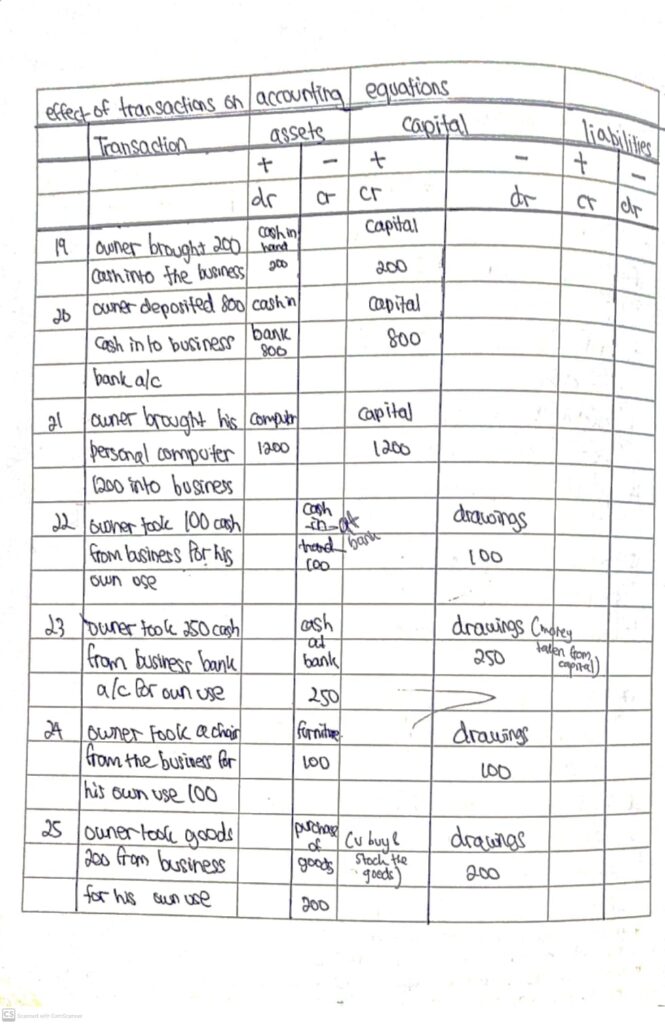 effect of transactions on accounting equations
Transaction assets capital liabilities
+ - + - + -
dr cr cr dr cr dr
19 owner brought 200 cash in hand capital
cash into the business 200 200
20 owner deposited 800 cash in capital
cash in to business bank 800 800
bank a/c
21 owner brought his computer capital
personal computer 1200 1200
1200 into business
22 owner took 100 cash cash in at drawings
from business for his hand bank 100 100
own use
23 owner took 250 cash cash at drawings (money taken from capital)
from business bank bank 250
a/c for own use 250
24 owner took a chair furniture drawings
from the business for 100 100
his own use 100
25 owner took goods purchase of (u buy & stock the goods) drawings
200 from business goods 200
for his own use 200
CS Scanned with CamScanner